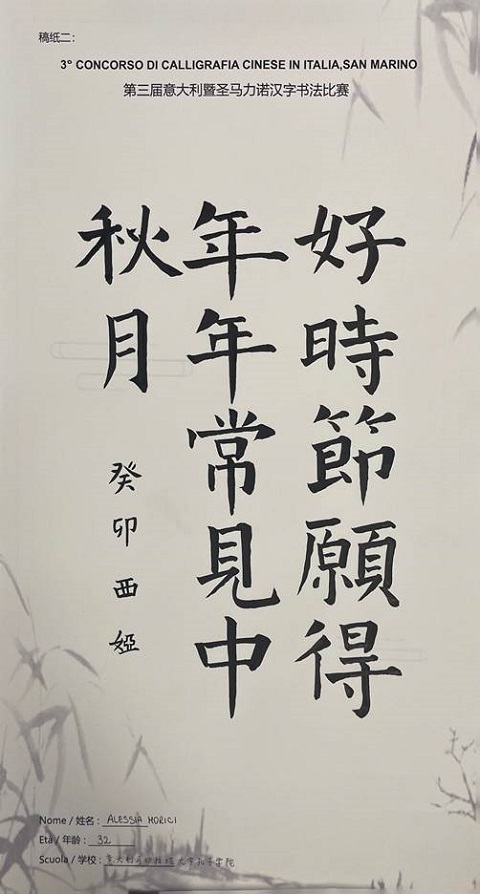 稿纸二：
3° CONCORSO DI CALLIGRAFIA CINESE IN ITALIA,SAN MARINO
第三届意大利暨圣马力诺汉字书法比赛
好時節願得
年年常見中
秋月
癸卯西婭
Nome / 姓名: ALESSIA MORICI
Età / 年龄: 32
Scuola / 学校: 意大利 大学孔子学院